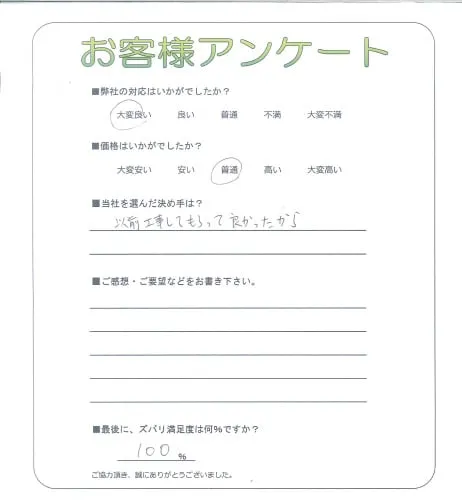 お客様アンケート
■弊社の対応はいかがでしたか？
大変良い 良い 普通 不満 大変不満
■価格はいかがでしたか？
大変安い 安い 普通 高い 大変高い
■当社を選んだ決め手は？
以前工事してもらって良かったから
■ご感想・ご要望などをお書き下さい。
■最後に、ズバリ満足度は何%ですか？
100 %
ご協力頂き、誠にありがとうございました。